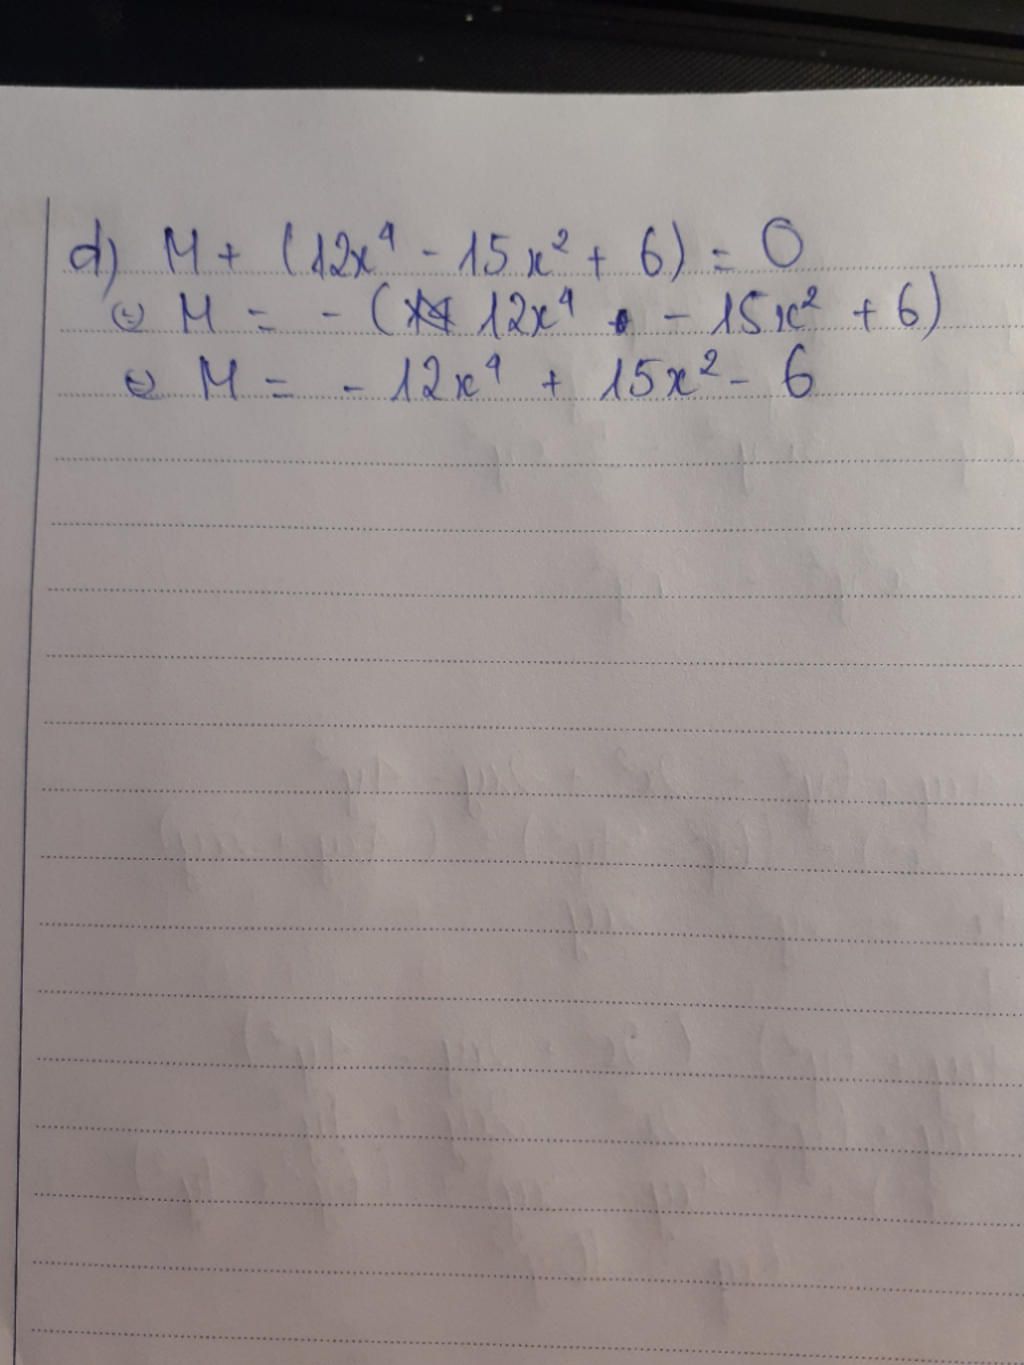 d) M + (12x⁴ - 15x² + 6) = 0
⇔ M = - (12x⁴ - 15x² + 6)
⇔ M = - 12x⁴ + 15x² - 6